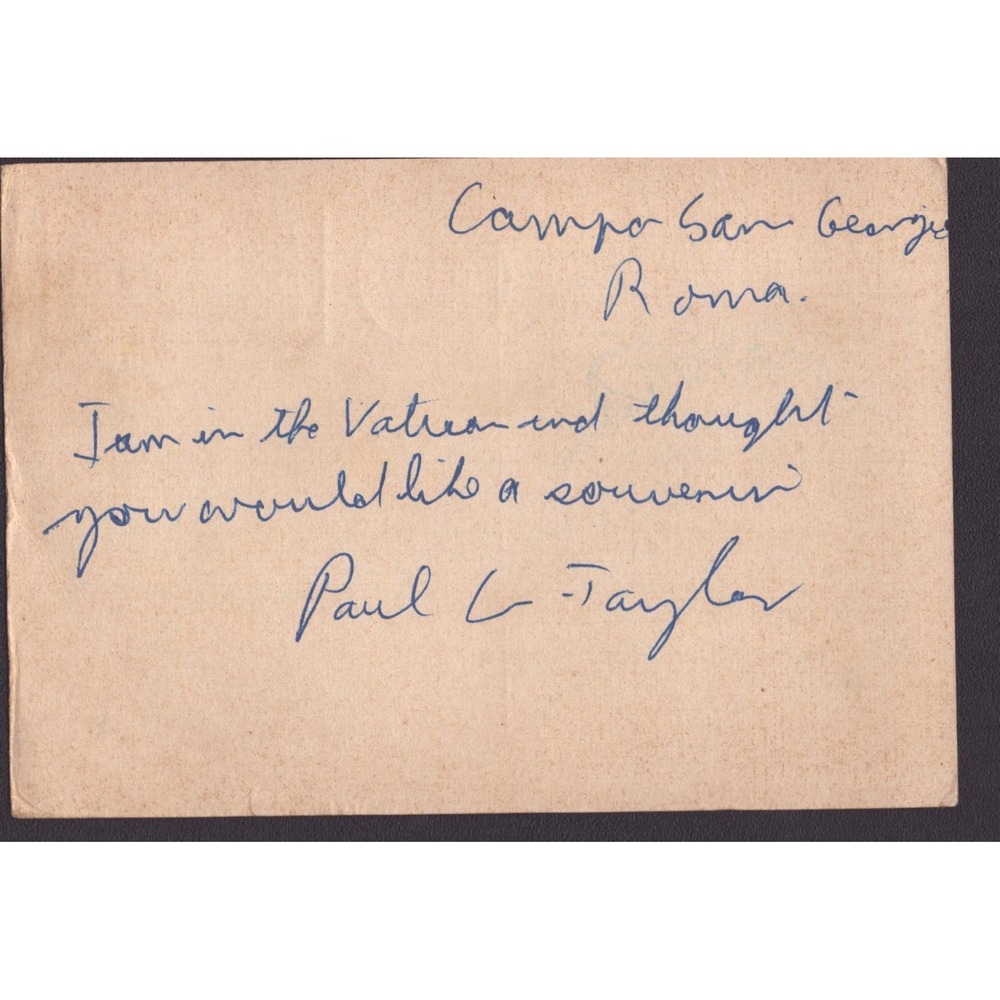 Campo San Georgio
Roma.
I am in the Vatican and thought
you would like a souvenir
Paul G Taylor